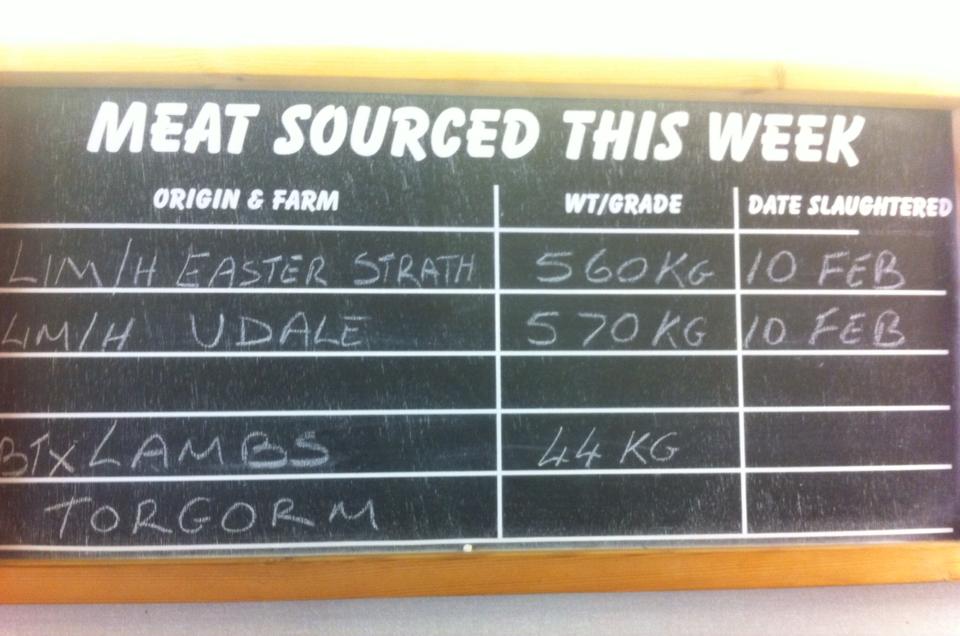 MEAT SOURCED THIS WEEK
ORIGIN & FARM WT/GRADE DATE SLAUGHTERED
LIM/H EASTER STRATH 560KG 10 FEB
LIM/H UDALE 570KG 10 FEB
BTX LAMBS 44KG
TORGORM